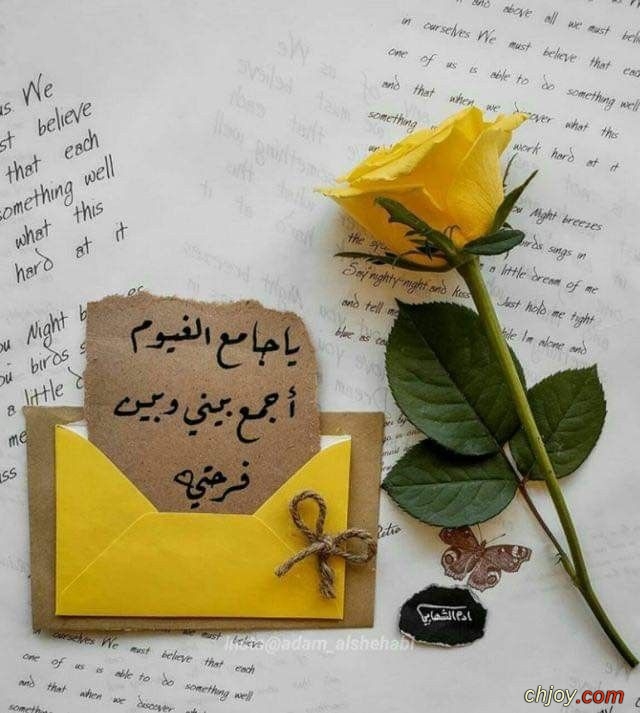 and above all we must
in ourselves We must believe that each
one of us is able to do something well
and that when we discover what this
something
work hard at it
us We
st believe
that each
something well
what this
hard at it
Night breezes
birds sings in
little dream of me
Say nighty-night and kiss
Just hold me tight
and tell me
while Im alone and
blue as
ou Night b
ou birds s
a little d
me
ss
يا جامع الغيوم
أجمع بيني وبين
فرحتي
ادم الشهابي
insta@adam_alshehabi
ourselves We must believe
one of us is able to do something well
and that when we discover what
something
chjoy.com